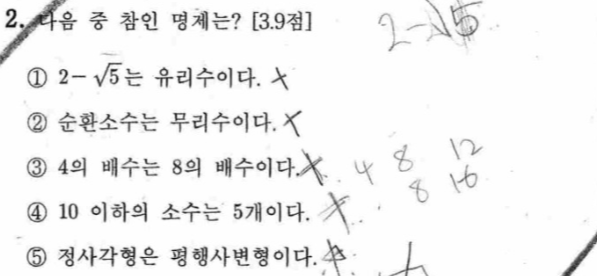 2. 다음 중 참인 명제는? [3.9점]
2-√5
① 2-√5는 유리수이다. ×
② 순환소수는 무리수이다. ×
③ 4의 배수는 8의 배수이다. × 4 8 12
8 16
④ 10 이하의 소수는 5개이다. ×
⑤ 정사각형은 평행사변형이다.